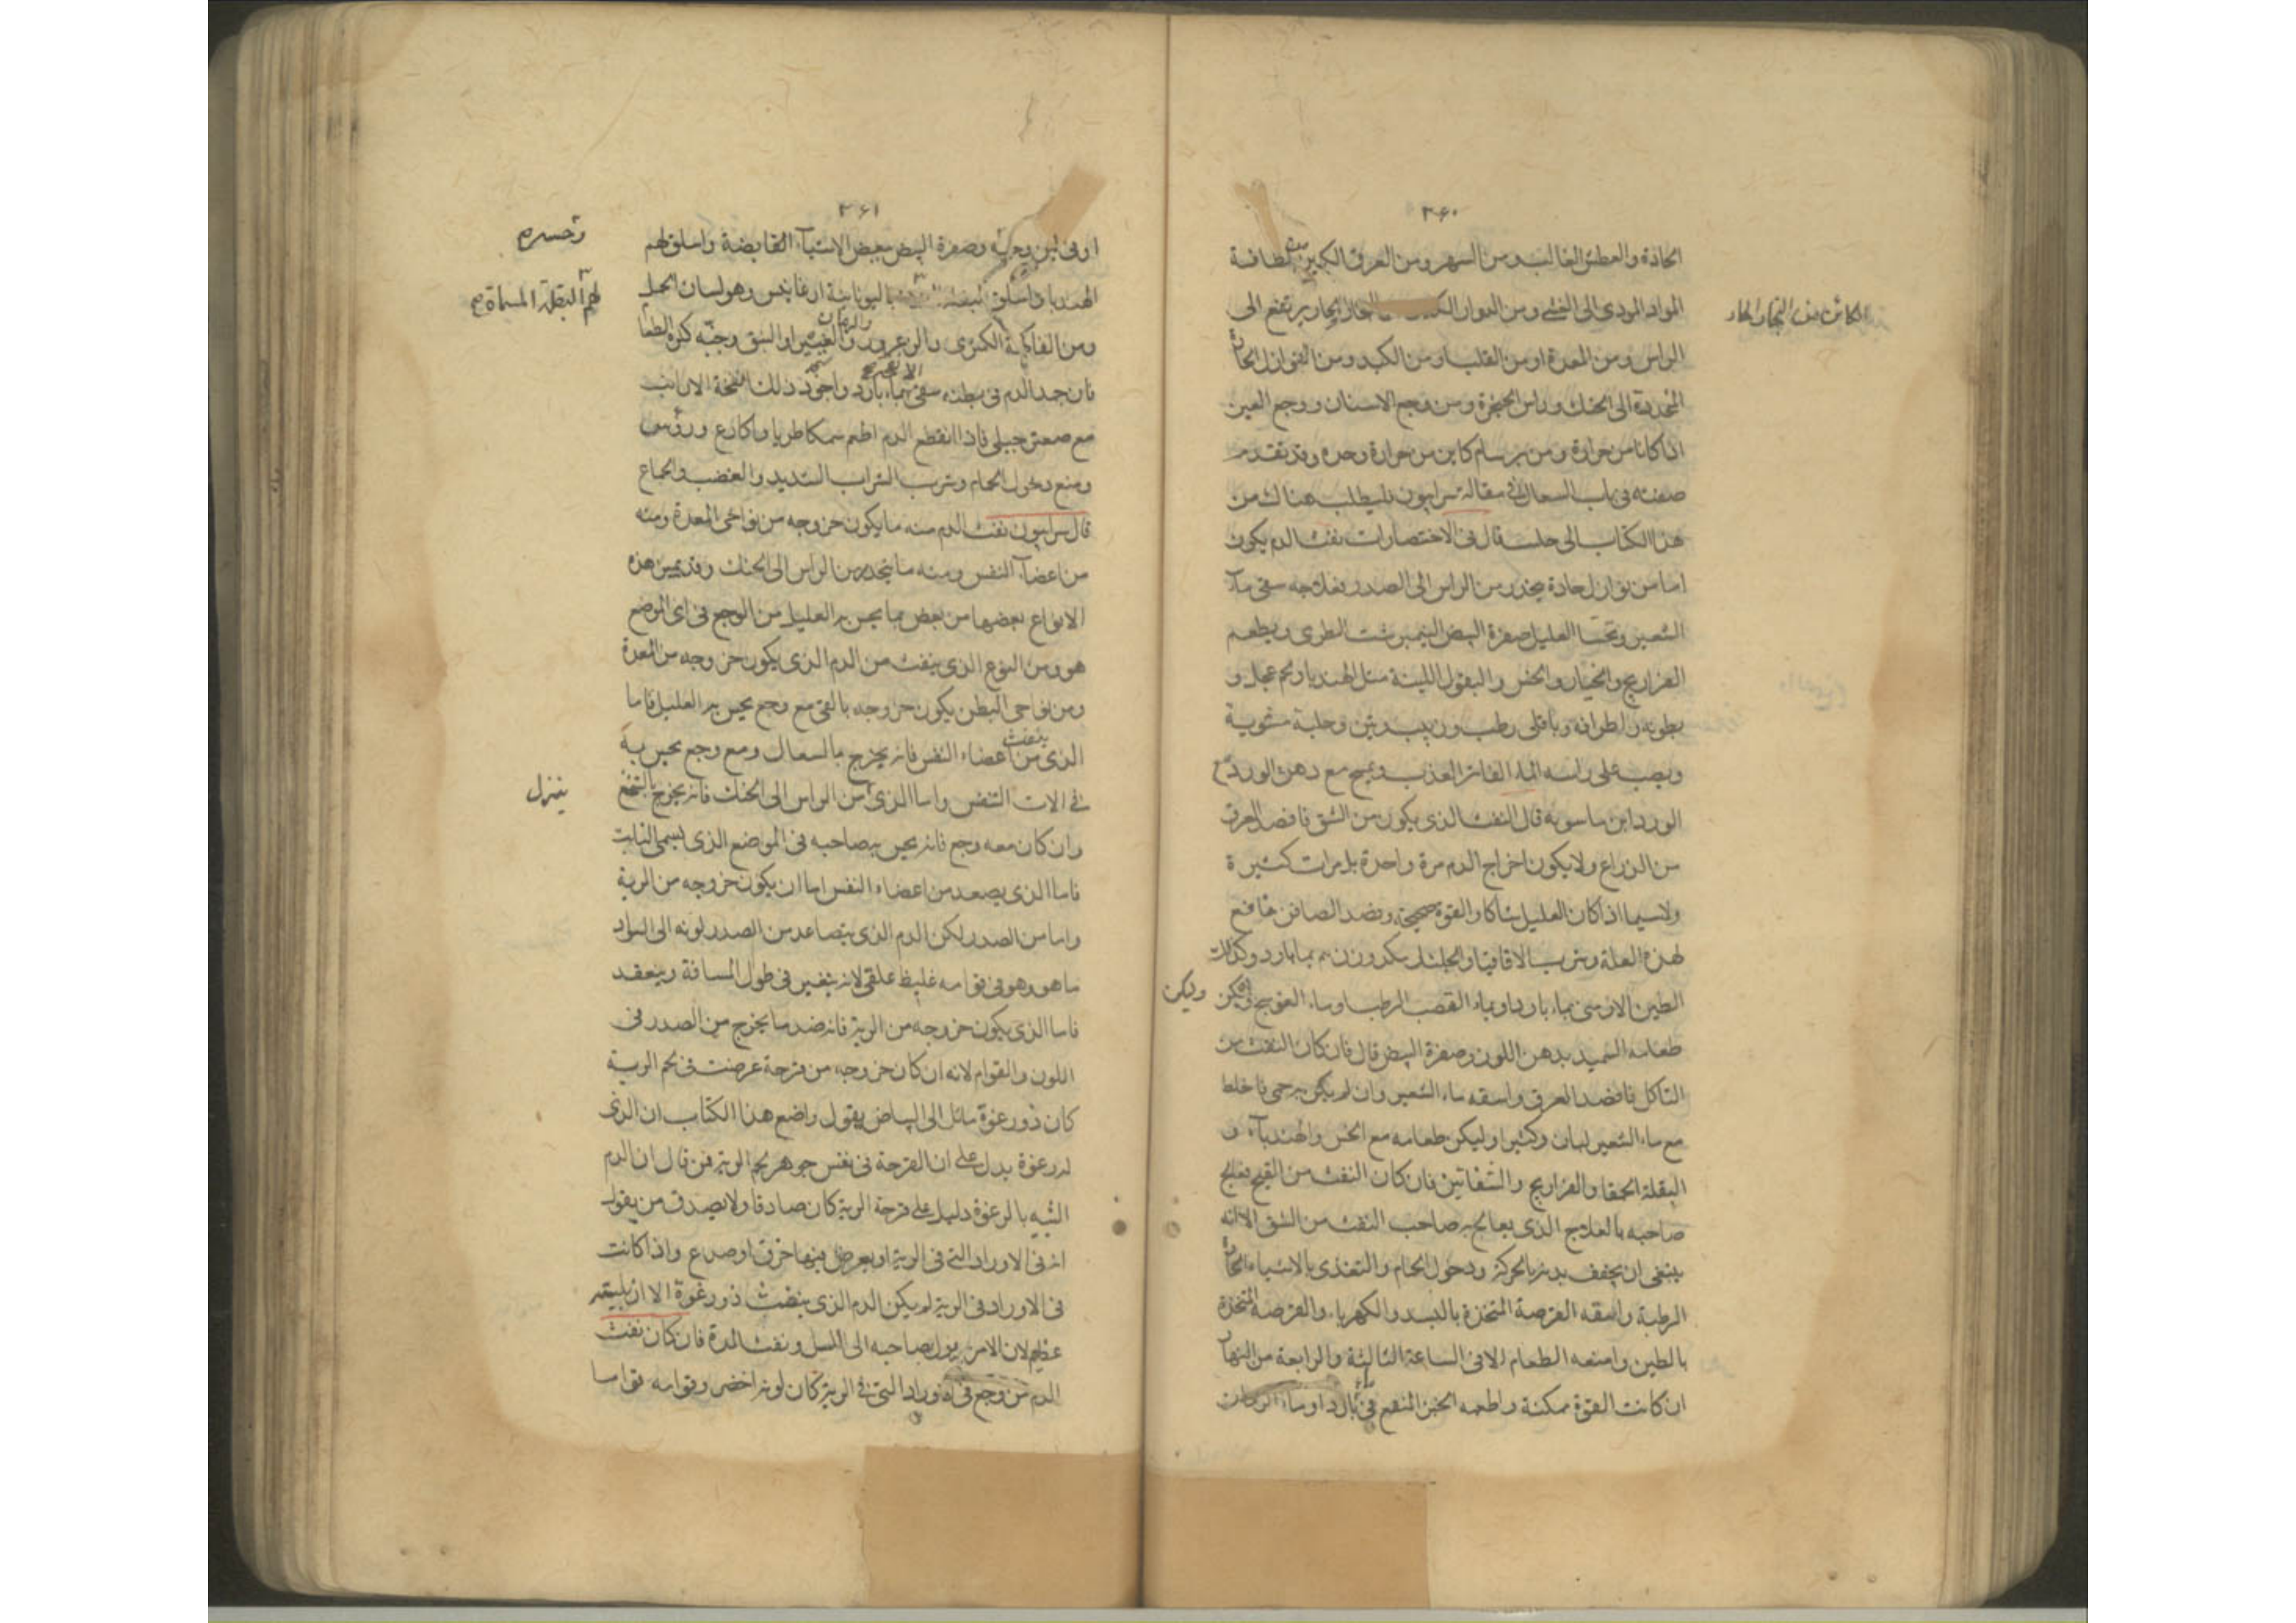 ۳۶۰
الحادة والعطش الغالب ومن السهر ومن العرق الكثير من لطافة
المواد المودى الى الغشى ومن البخار يرتفع الى
الكائن من البخار الحار
الراس ومن المعدة او من القلب او من الكبد ومن النوازل الحادة
المنحدرة الى الحنك وراس الحنجرة ومن وجع الاسنان ووجع العين
اذا كانا من حرارة ومن برسام كاين من حرارة وحدة وقد تقدم
صفته فى باب السعال فى مقالة سرابيون فليطلب هناك من
هذا الكتاب الى قال فى الاختصارات نفث الدم يكون
اما من نوازل حادة ينحدر من الراس الى الصدر فعلاجه سقى مآء
الشعير ويحسا العليل صفرة البيض النيمبرشت الطرى ويطعم
الفراريج والخيار والخس والبقول اللينة مثل الهندبا ولحم عجل و
بطونه واطرافه وباقلى رطب وزبيب وتين وحلبة مشوية
ويصب على راسه الماء الفاتر العذب ويمسح مع دهن الورد مع
الورد ابن ماسويه قال النفث الذى يكون من الشق فافصد العرق
من الذراع ولا يكون اخراج الدم مرة واحدة بل مرات كثيرة
ولا سيما اذا كان العليل شابا والقوة صحيحة وفصد الصافن نافع
لهذه العلة وشرب الاقاقيا والجلنار وزن بماء بارد وكذلك
الطين الارمنى بماء بارد او بماء القصب الرطب وماء العوسج وليكن
وليكن
طعامه السميد بدهن اللوز وصفرة البيض قال فان كان النفث من
التاكل فافصد العرق واسقه ماء الشعير وان لم يكن به حمى فاخلط
مع ماء الشعير لبان وكثيرا وليكن طعامه مع الخس والهندبآء و
البقلة الحمقا والفراريج والشفانين فان كان النفث من القيح فعالج
صاحبه بالعلاج الذى يعالج به صاحب النفث من الشق الا انه
ينبغى ان يجفف بدنه بالحركة ودخول الحمام والتغذى بالاشياء الحارة
الرطبة واسقه القرصة المتخذة بالبسد والكهربا والقرصة المتخذة
بالطين وامنعه الطعام الا فى الساعة الثالثة والرابعة من النهار
ان كانت القوة ممكنة واطعمه الخبز المنقع فى ماء بارد او ماء الرمان
۳۶۱
او فى لبن وصفرة البيض ببعض الاشيآء القابضة واسلق لهم
الهندبا باليونانية وهو لسان الحمل
لهم البقلة المسماة
ومن الفاكهة الكمثرى والزعرور والغبيرا والنبق وجنبه كثرة الطعام
والرمان
فان جمد الدم فى بطنه سقى بماء بارد واجود ذلك انفحة الارانب
مع صعتر جبلى فاذا انقطع الدم اطعم سمكا طريا واكارع ورؤس
ومنع دخول الحمام وشرب الشراب الشديد والغضب والجماع
قال سرابيون نفث الدم منه ما يكون خروجه من نواحى المعدة ومنه
من اعضآء النفس ومنه ما ينحدر من الراس الى الحنك وقد يميز هذه
الانواع بعضها من بعض بما يحس به العليل من الوجع فى اى الموضع
هو ومن النوع الذى ينفث من الدم الذى يكون خروجه من المعدة
ومن نواحى البطن يكون خروجه بالقى مع وجع يحس به العليل فاما
الذى ينفث من اعضاء النفس فانه يخرج بالسعال ومع وجع يحس به
فى الات التنفس واما الذى من الراس الى الحنك فانه يخرج بالتنخع
ينزل
وان كان معه وجع فانه يحس به صاحبه فى الموضع الذى يسمى الثابت
فاما الذى يصعد من اعضاء النفس اما ان يكون خروجه من الرية
واما من الصدر لكن الدم الذى يتصاعد من الصدر لونه الى السواد
ما هو وهو فى قوامه غليظ علقى لانه يتغير فى طول المسافة وينعقد
فاما الذى يكون خروجه من الرية فانه ضد ما يخرج من الصدر فى
اللون والقوام لانه ان كان خروجه من قرحة عرضت فى لحم الرية
كان ذو رغوة مائل الى البياض يقول واضع هذا الكتاب ان الذى
له رغوة يدل على ان القرحة فى نفس جوهر لحم الرية فمن قال ان الدم
الشبيه بالرغوة دليل على قرحة الرية كان صادقا ولا يصدق من يقول
انه فى الاوراد التى فى الرية او يعرض فيها خرق او صدع واذا كانت
فى الاوراد فى الرية لم يكن الدم الذى ينفث ذو رغوة الا ان بليته
عظيم لان الامر يؤل بصاحبه الى السل ونفث المدة فان كان نفث
الدم من وجع فى اوراد التى فى الرية كان لونه اخضر وقوامه قواما